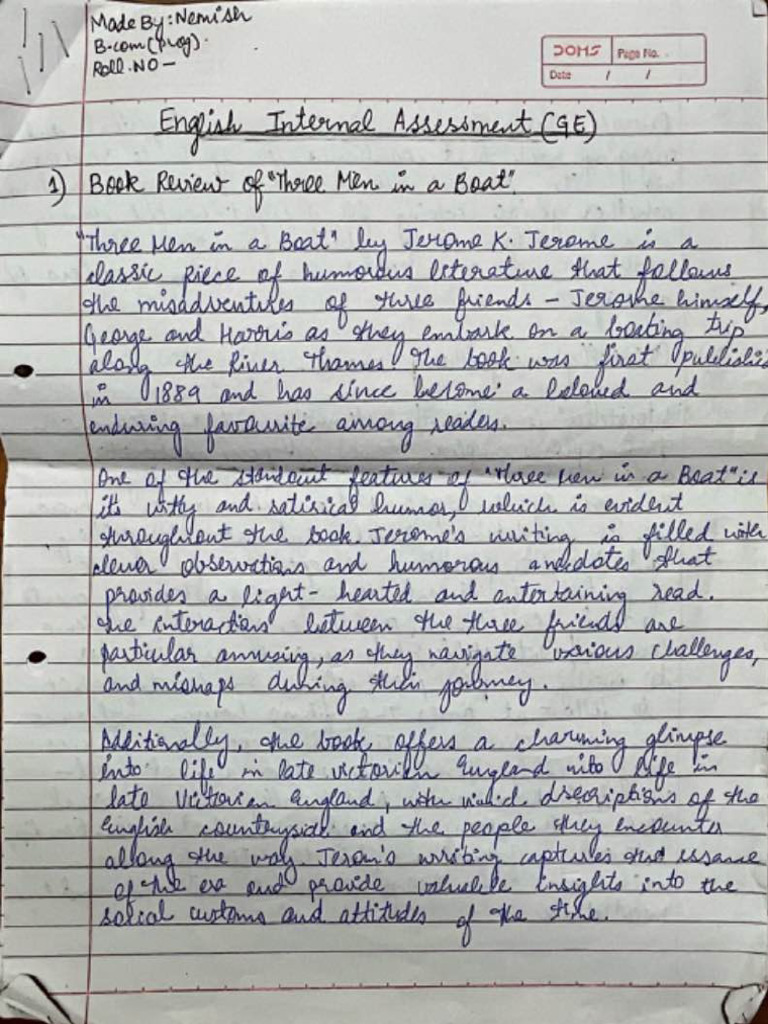 Made By: Nemish
B.com (prog).
Roll.NO -
DOMS Page No.
Date / /
English Internal Assessment (GE)
1) Book Review of "Three Men in a Boat"
"Three Men in a Boat" by Jerome K. Jerome is a
classic piece of humorous literature that follows
the misadventures of three friends - Jerome himself,
George and Harris as they embark on a boating trip
along the River Thames. The book was first publishe
in 1889 and has since become a beloved and
enduring favourite among readers.
One of the standout features of "Three Men in a Boat" is
its witty and satirical humor, which is evident
throughout the book. Jerome's writing is filled with
clever observations and humorous anecdotes that
provides a light-hearted and entertaining read.
The interactions between the three friends are
particular amusing, as they navigate various challenges,
and mishaps during their journey.
Additionally, the book offers a charming glimpse
into life in late victorian England into life in
late Victorian England, with vivid descriptions of the
English countryside and the people they encounter
along the way. Jerom's writing captures the essance
of the era and provide valuable insights into the
social customs and attitudes of the time.